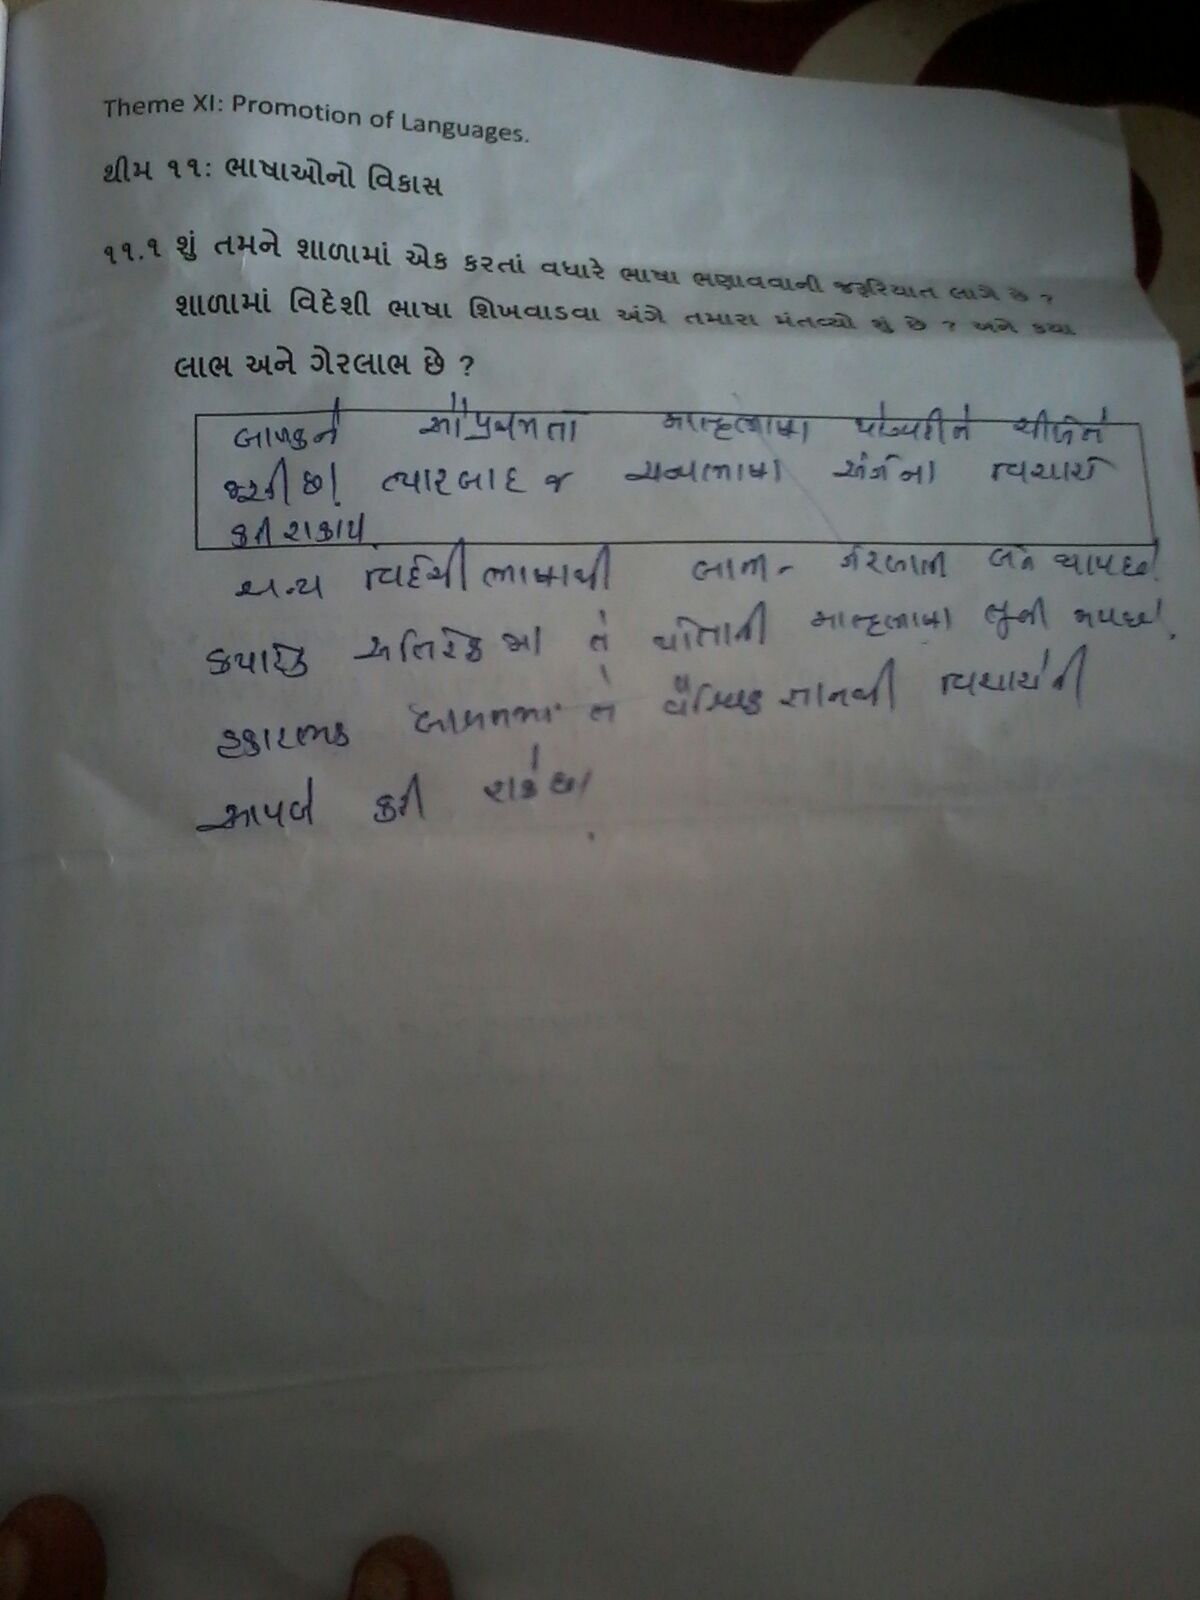 Theme XI: Promotion of Languages.
થીમ ૧૧: ભાષાઓનો વિકાસ
૧૧.૧ શું તમને શાળામાં એક કરતાં વધારે ભાષા ભણાવવાની જરૂરિયાત લાગે છે ?
શાળામાં વિદેશી ભાષા શિખવાડવા અંગે તમારા મંતવ્યો શું છે ? અને કયા
લાભ અને ગેરલાભ છે ?
બાળકને સૌપ્રથમતો માતૃભાષા
જરૂરી છે. ત્યારબાદ જ અન્યભાષા અંગેના વિચારો
કરી શકાય.
અન્ય વિદેશી ભાષાથી લાભ - ગેરલાભ બંને થાય છે.
ક્યારેક અતિરેકમાં તે પોતાની માતૃભાષા ભૂલી જાય છે.
હકારાત્મક તે વૈશ્વિક જ્ઞાનથી વિચારોની
આપલે કરી શકે છે.